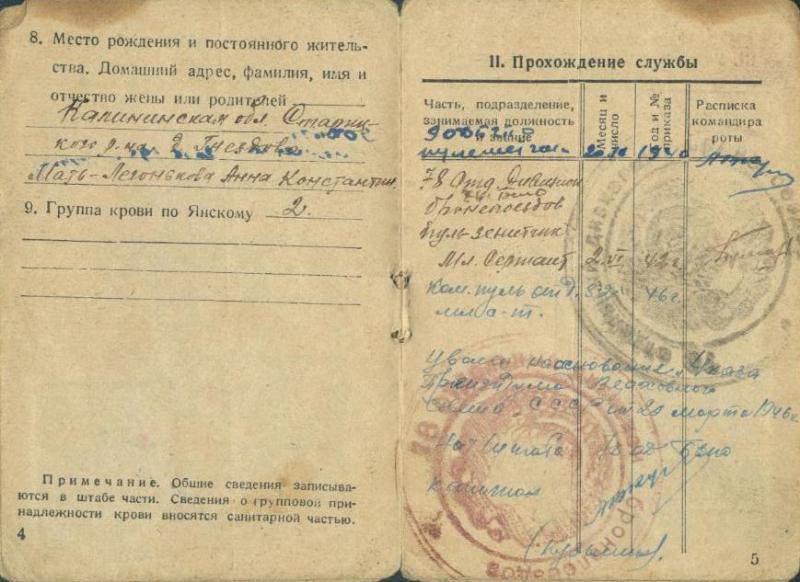 8. Место рождения и постоянного житель-
ства. Домашний адрес, фамилия, имя и
отчество жены или родителей
Калининская обл. Стариц-
кого р-на д. Гнездово
Мать-Легонькова Анна Константин.
9. Группа крови по Янскому 2.
Примечание. Общие сведения записыва-
ются в штабе части. Сведения о групповой при-
надлежности крови вносятся санитарной частью.
4
II. Прохождение службы
Часть, подразделение,
занимаемая должность
и звание
Месяц и
число
Год и №
приказа
Расписка
командира
роты
1940
78 Отд. Дивизион
бронепоездов
пул. зенитчик
Мл. Сержант 2.VI 42 г.
Ком. пул. отд. 46 г.
Уволен на основании Указа
Президиума Верховного
Совета СССР от 20 марта 1946 г.
Нач. Штаба 78 од бэпо
капитан
5